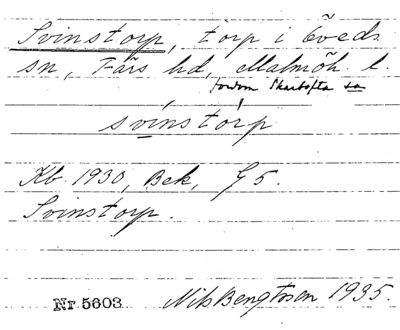 Svinstorp, torp i Öveds
sn, Färs hd, Malmöh. l.
fordom Skartofta sn
svinstorp
Kb 1930, Bek, G 5.
Svinstorp.
Nr 5603 Nils Bengtsson 1935.